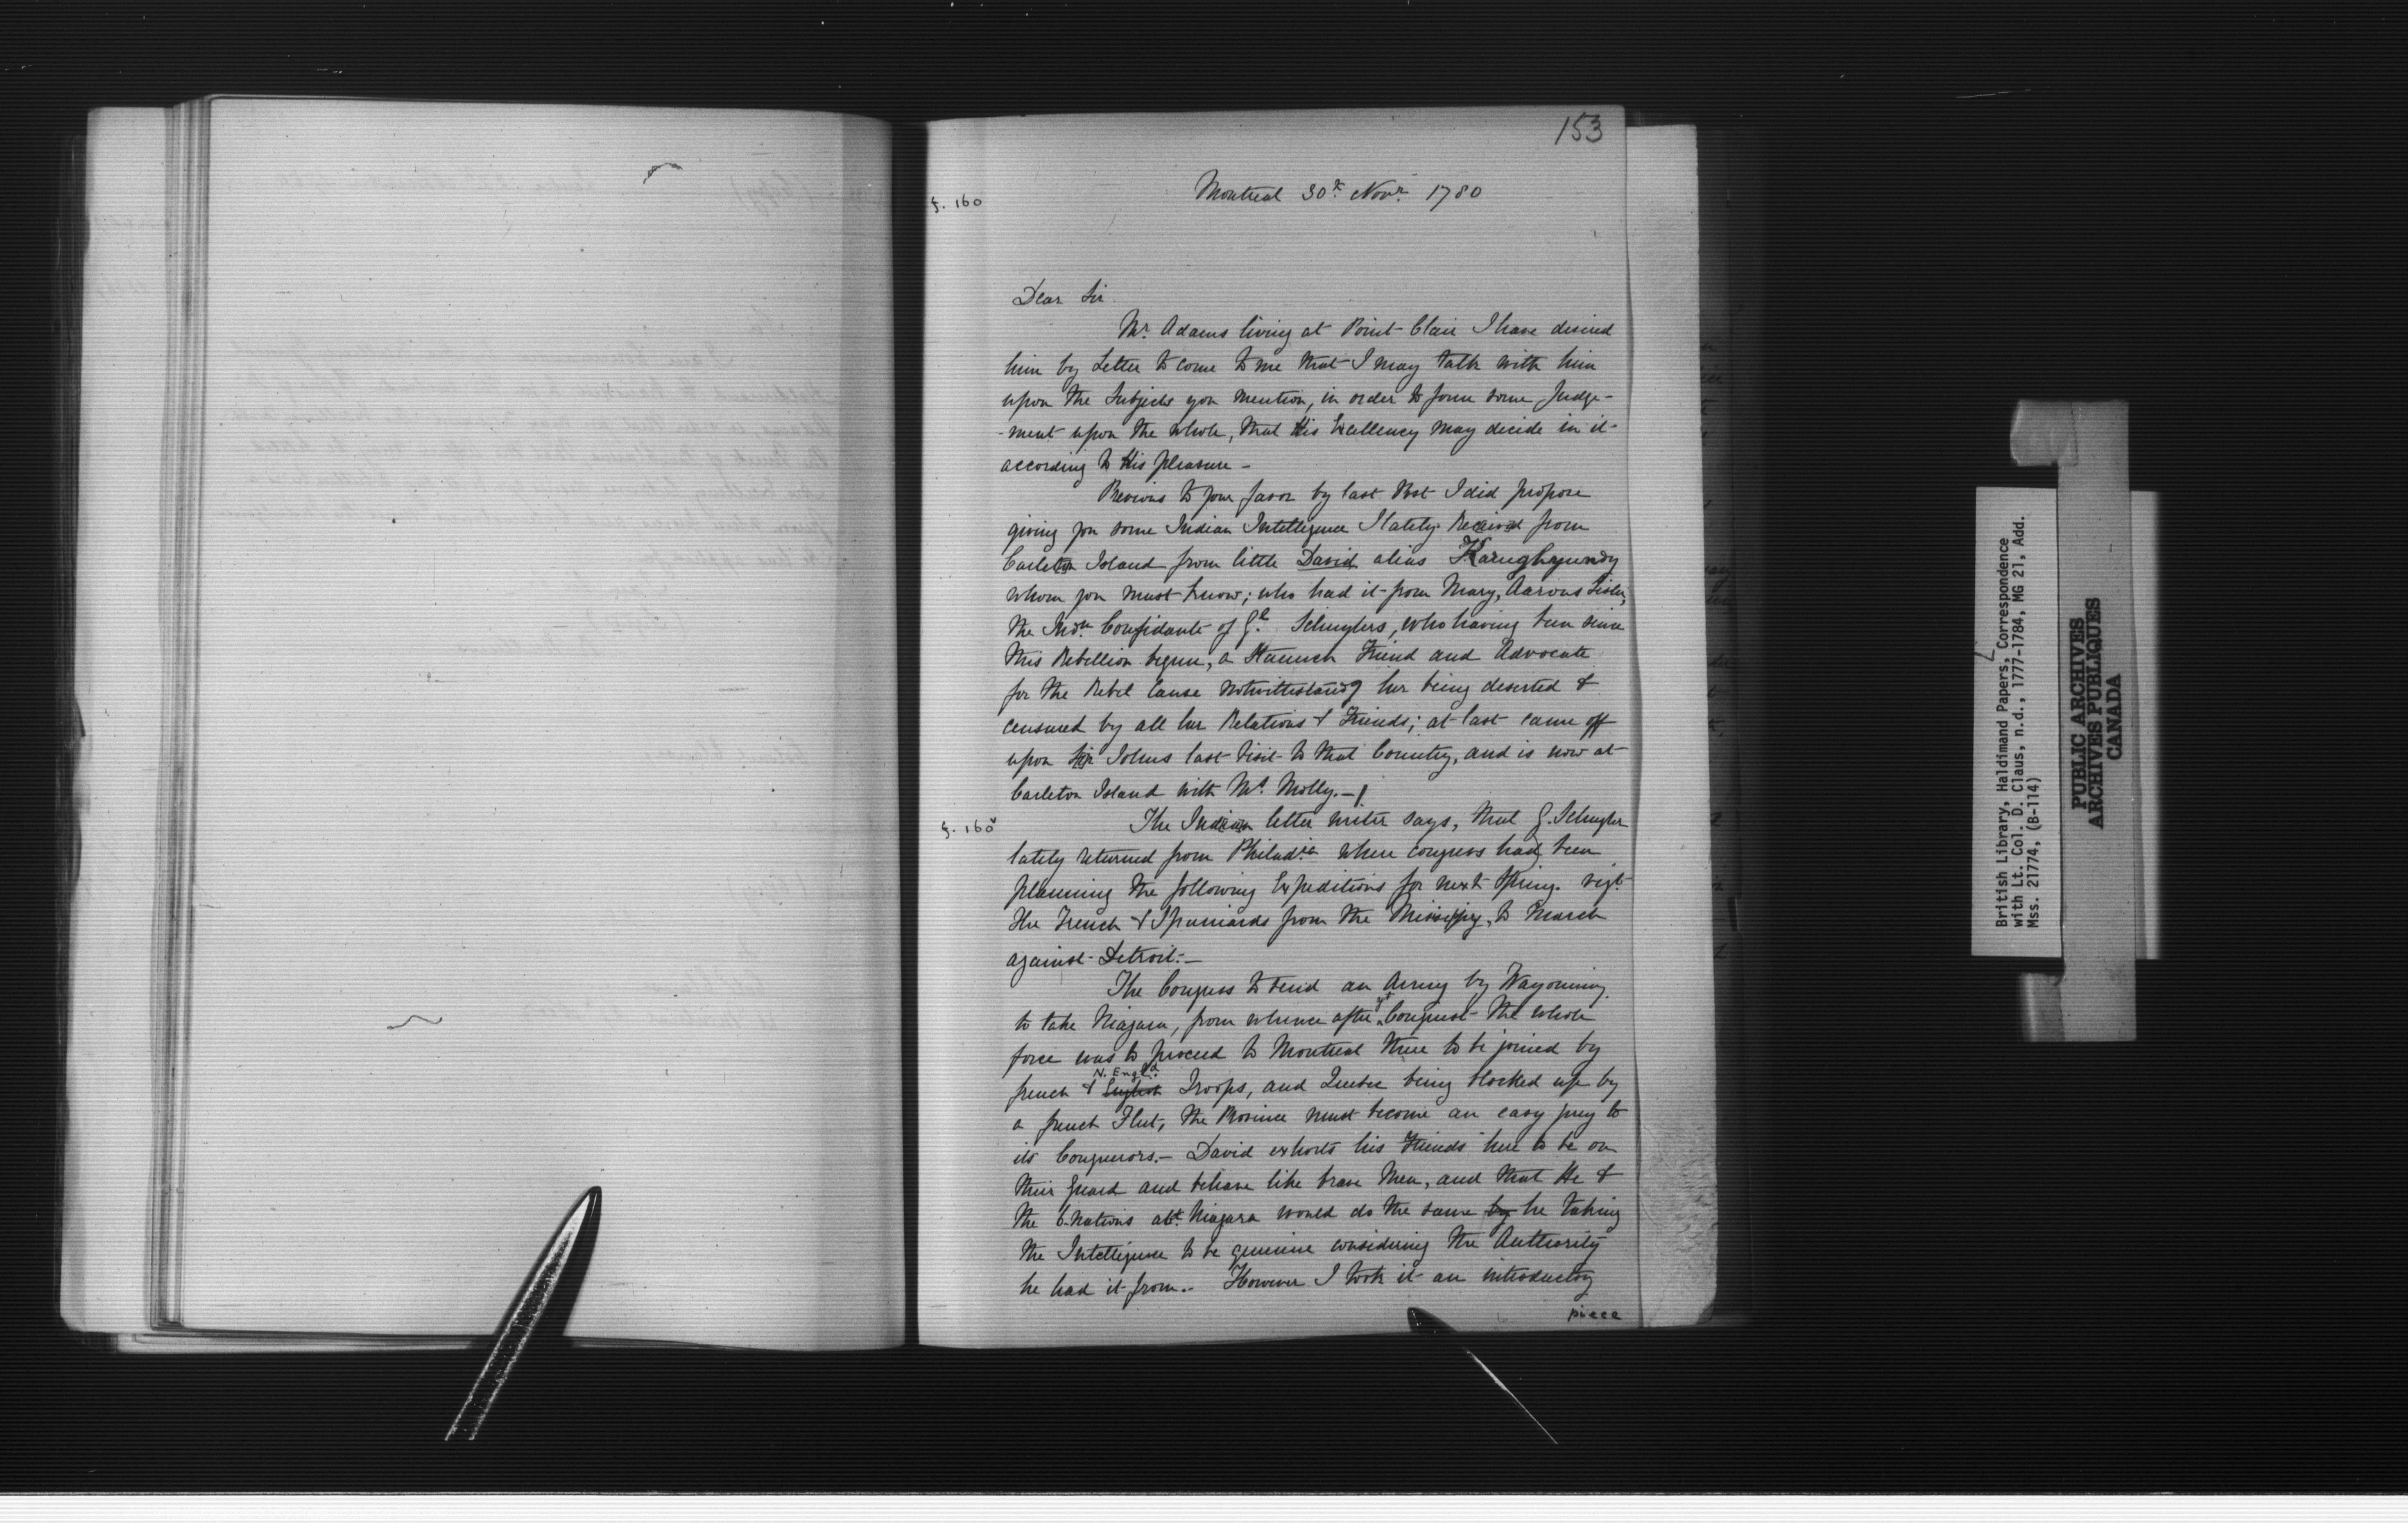 153
f. 160
Montreal 30th Novr. 1780
Dear Sir
Mr. Adams living at Point Clair I have desired
him by Letter to come to me that I may talk with him
upon the Subjects you mention, in order to form some Judge-
-ment upon the whole, that His Excellency may decide in it
according to His pleasure -
Previous to your favor by last Post I did propose
giving you some Indian Intelligence I lately Received from
Carleton Island from little David alias Karughyundy
whom you must know; who had it from Mary, Aarons Sister,
the Indn. Confidante of Gl. Schuylers, who having been since
this Rebellion begun, a Staunch Friend and Advocate
for the Rebel Cause notwithstandg her being deserted &
censured by all her Relations & Friends; at last came off
upon Sir Johns last Visit to that Country, and is now at
Carleton Island with Ms. Molly. -
f. 160v
The Indian letter writer says, that G. Schuyler
lately returned from Philada. where Congress had been
planning the following Expeditions for next Spring. vizt.
the French & Spaniards from the Missisippy, to March
against Detroit. -
The Congress to send an Army by Wayoming
to take Niagara, from whence after yt Conquest the whole
force was to proceed to Montreal there to be joined by
french & English N. Engld. Troops, and Quebec being blocked up by
a french Fleet, the Province must become an easy prey to
its Conquerors. - David exhorts his Friends here to be on
their Guard and behave like brave Men, and that He &
the 6 Nations abt. Niagara would do the same by he taking
the Intelligence to be genuine considering the Authority
he had it from. - However I took it an introductory
piece
British Library, Haldimand Papers, Correspondence
with Lt. Col. D. Claus, n.d., 1777-1784, MG 21, Add.
Mss. 21774, (B-114)
PUBLIC ARCHIVES
ARCHIVES PUBLIQUES
CANADA